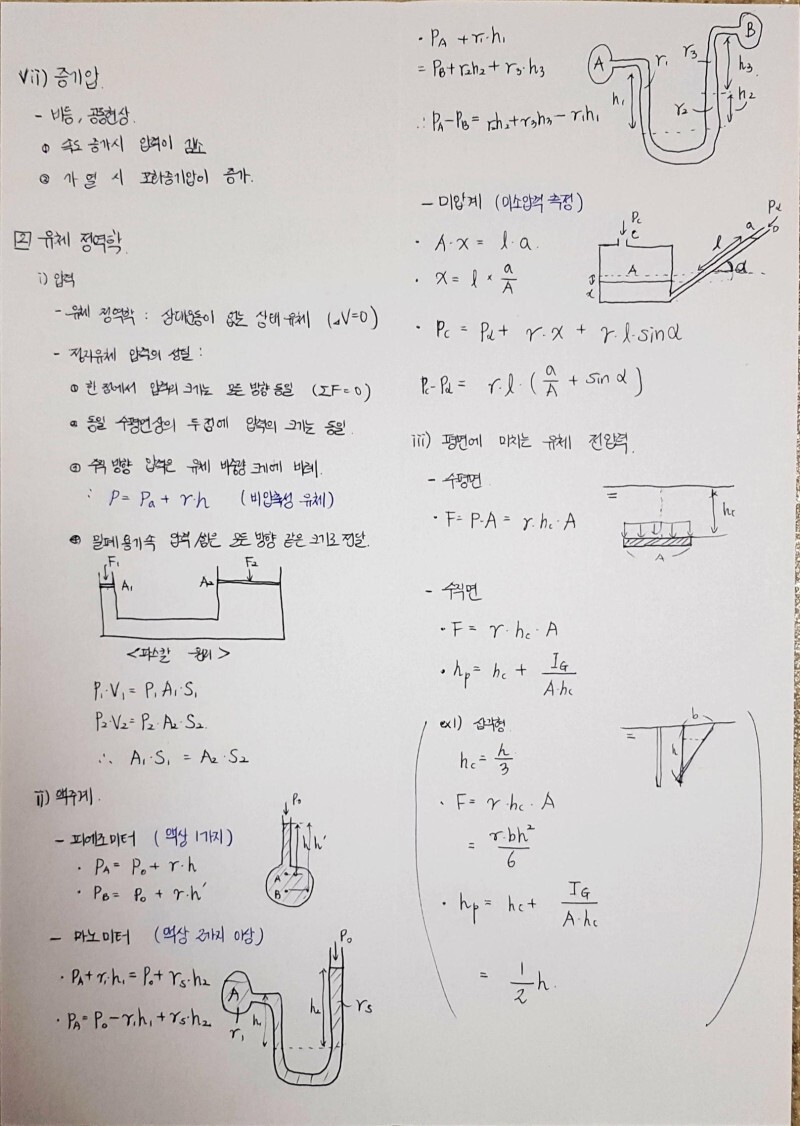 vii) 증기압
- 비등, 공동현상
① 속도 증가시 압력이 감소
② 가열 시 포화증기압이 증가.
[2] 유체 정역학
i) 압력
- 유체 정역학 : 상대운동이 없는 상태 유체 (⊿V=0)
- 정지유체 압력의 성질 :
① 한 점에서 압력의 크기는 모든 방향 동일 (ΣF=0)
② 동일 수평면상의 두 점에 압력의 크기는 동일.
③ 수직 방향 압력은 유체 비중량 크기에 비례.
∴ P = Pa + γ·h (비압축성 유체)
④ 밀폐 용기속 압력 은 모든 방향 같은 크기로 전달.
F1 A1 A2 F2
<파스칼 원리>
P1·V1 = P1·A1·S1
P2·V2 = P2·A2·S2
∴ A1·S1 = A2·S2
ii) 액주계
- 피에조미터 (액상 1가지)
· PA = Po + γ·h
· PB = Po + γ·h′
Po
h h′
A
B
- 마노미터 (액상 2가지 이상)
· PA + γ1·h1 = Po + γs·h2
· PA = Po - γ1h1 + γs·h2
Po
A h1 h2 γs
γ1
· PA + γ1·h1
= PB + γ2h2 + γ3·h3
∴ PA-PB = γ2h2 + γ3h3 - γ1h1
A B
γ1 γ3 h3
h1 γ2 h2
- 미압계 (미소압력 측정)
· A·x = l·a
· x = l × a/A
Pc Pd
c a D
A l α
x
· Pc = Pd + γ·x + γ·l·sinα
Pc-Pd = γ·l·(a/A + sinα)
iii) 평면에 미치는 유체 전압력.
- 수평면
· F = P·A = γ·hc·A
hc
A
- 수직면
· F = γ·hc·A
· hp = hc + IG/A·hc
ex1) 삼각형
hc = h/3
b
h
· F = γ·hc·A
= γ·bh²/6
· hp = hc + IG/A·hc
= 1/2 h.